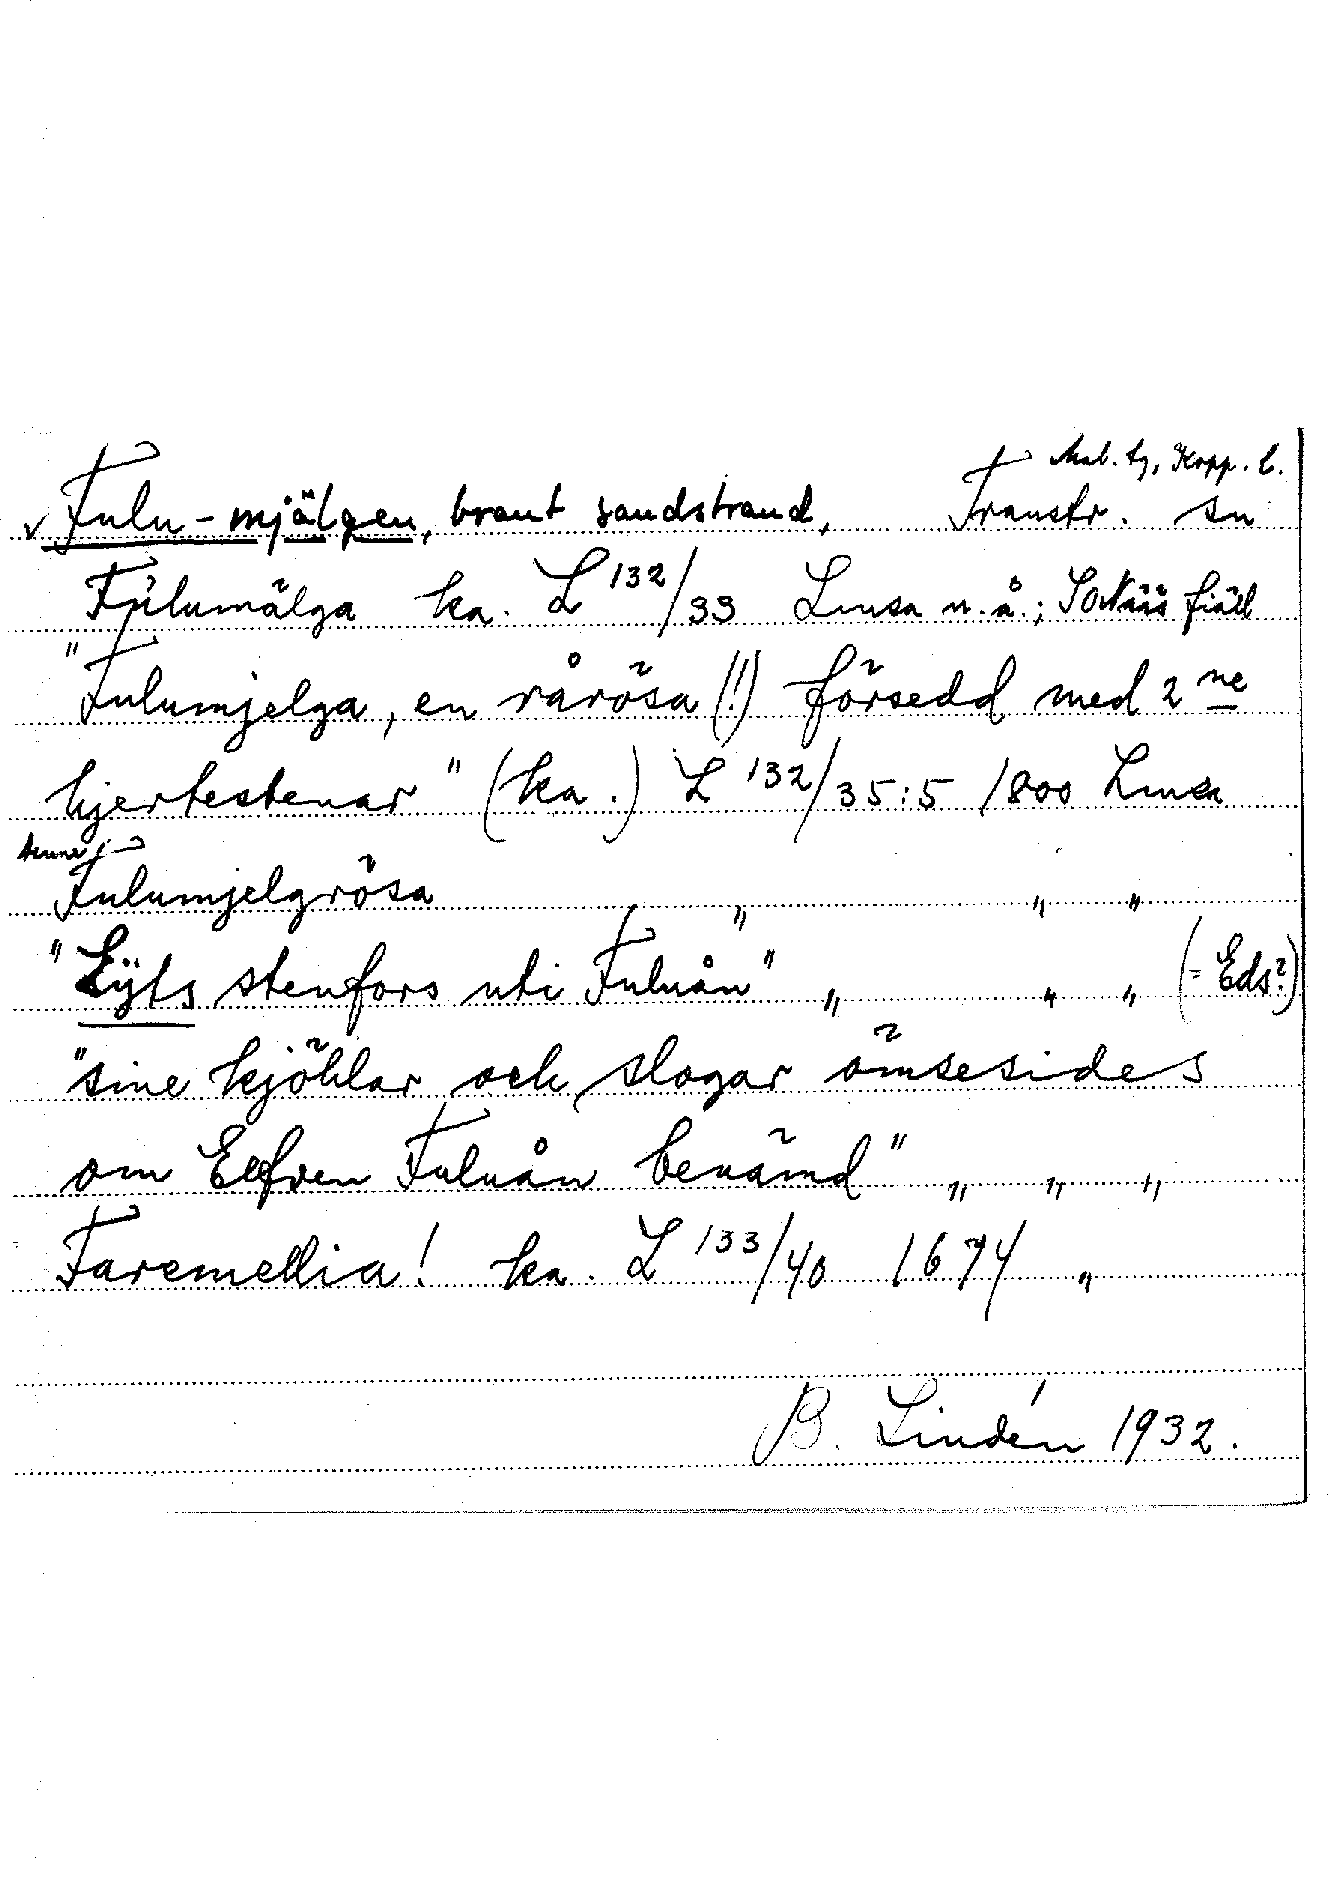 Mal. tg, Kopp. l.
√ Fulu-mjälgen, brant sandstrand, Transtr. sn
Fulumälga ka. L 132/33 Limsa n. å.; fiäll
"Fulumjelga, en rårösa (!) försedd med 2 ne
hjertestenar" (ka.) L 132/35:5 1800 Limsa
Fulumjelgrösa " " "
"Eÿts stenfors uti Fuluån" " " " (= Eds?)
"sine kjöhlar och slogar ömsesides
om Elfven Fuluån benämd" " " "
Faremellia! ka. L 133/40 1674 "
B. Lindén 1932.